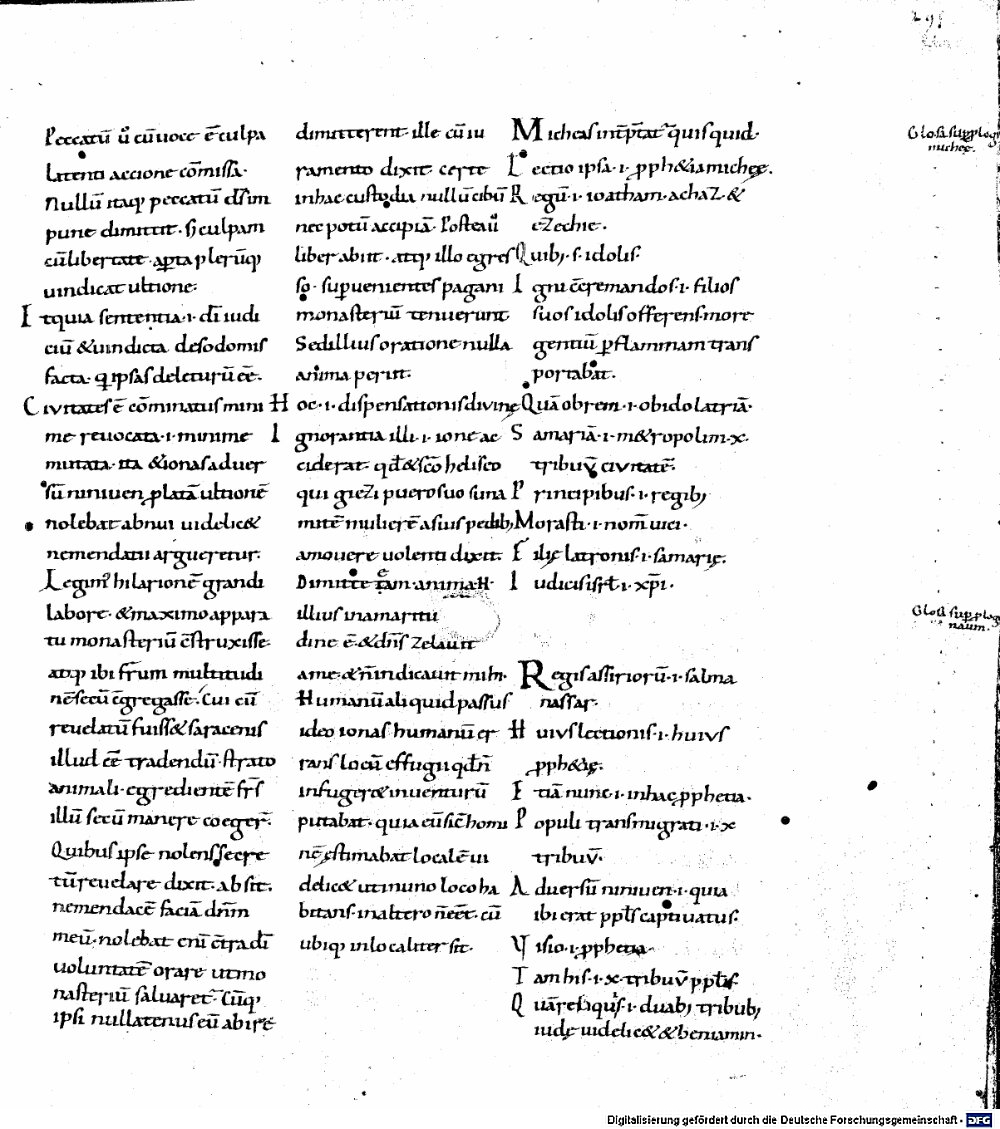 Peccatū ū cū uoce ē culpa
latenti accione cōmissa·
Nullū itaq; peccatū dn̄s im
pune dimittit· si culpam
cū libertate aꝑta plerūq;
uindicat ultione:
Et quia sententia·i· dī iudi
ciū & uindicta de sodomis
facta· q̄ ipsas deleturū ēē·
Civitates ē cōminatus mini
me revocata·i· minime
mutata· ita & ionas aduer
sū niniuen ꝓlatā ultionē
nolebat abnui uidelic&
ne mendatii argueretur·
Legim' hilarionē grandi
labore· & maximo appara
tu monasteriū c̄struxisse·
atq; ibi fr̄um multitudi
nē secū c̄gregasse· Cui cū
reuelatū fuiss& saracenis
illud ēē tradendū· strato
animali· egredientē fr̄s
illū secū manere coeger̄·
Quibus ipse nolens secre
tū reuelare dixit· absit·
ne mendacē faciā dn̄m
meū· nolebat eni c̄tra dī
voluntatē orare ut mo
nasteriū salvaret· Cūq;
ipsi nullatenus eū abire
dimitterent· ille cū iu
ramento dixit· certe
in hac custodia nullū cibū
nec potū accipiā· Postea ū
liber abiit· atq; illo egres
so· suꝑvenientes pagani
monasteriū tenuerunt
Sed illius oratione nulla
anima periit·
Hoc·i· dispensationis divinę
Ignorantia illi·i· ione ac
ciderat· qd̄ & sc̄o heliseo
qui giezi puero suo suna
mitē mulierē a suis pedib;
amovere uolenti dixit·
Dimitte eam· anima ·H·
illius in amaritu
dine ē· & dn̄s zelauit
a me· & n̄ indicauit mihi·
Humanū aliquid passus
ideo ionas humanū er
rans locū effugii qd̄ n̄
infuger& inventurū
putabat· quia cū sic homi
nē ęstimabat localē ui
delic& ut in uno loco ha
bitans· in altero n̄ eēt· cū
ubiq; inlocaliter sit·
Micheas int̄ꝑtat̄ quisquid·
Lectio ipsa·i· ꝓph&ia michęę·
Regū·i· ioatham· achaz· &
ezechie·
Quib;·s· idolis·
Igni c̄cremandos·i· filios
suos idolis offerens· more
gentiū ꝑ flammam trans
portabat·
Quā obrem·i· ob idolatriā·
Samariā·i· m&ropolim·x·
tribuū civitatē·
Principibus·i· regib;
Morasti·i· nom̄ uici·
Filię latronis·i· samarię·
Iudicis isrt̄·i· xp̄i·
Glosa suꝑ ꝓlogū
michęę·
Glosa suꝑ ꝓlog
naum·
Regis assiriorū·i· salma
nassar·
Huius lectionis·i· huius
ꝓph&ię·
Etiā nunc·i· in hac ꝓphetia·
Populi transmigrati·i·x
tribuū·
Adversū niniuen·i· quia
ibi erat ppl̄s captivatus·
Visio·i· ꝓphetia·
Tam his·i·x· tribuū ppl̄s·
Quā reliquis·i· duab; tribub;
iudę uidelic& & beniamin·
Digitalisierung gefördert durch die Deutsche Forschungsgemeinschaft - DFG